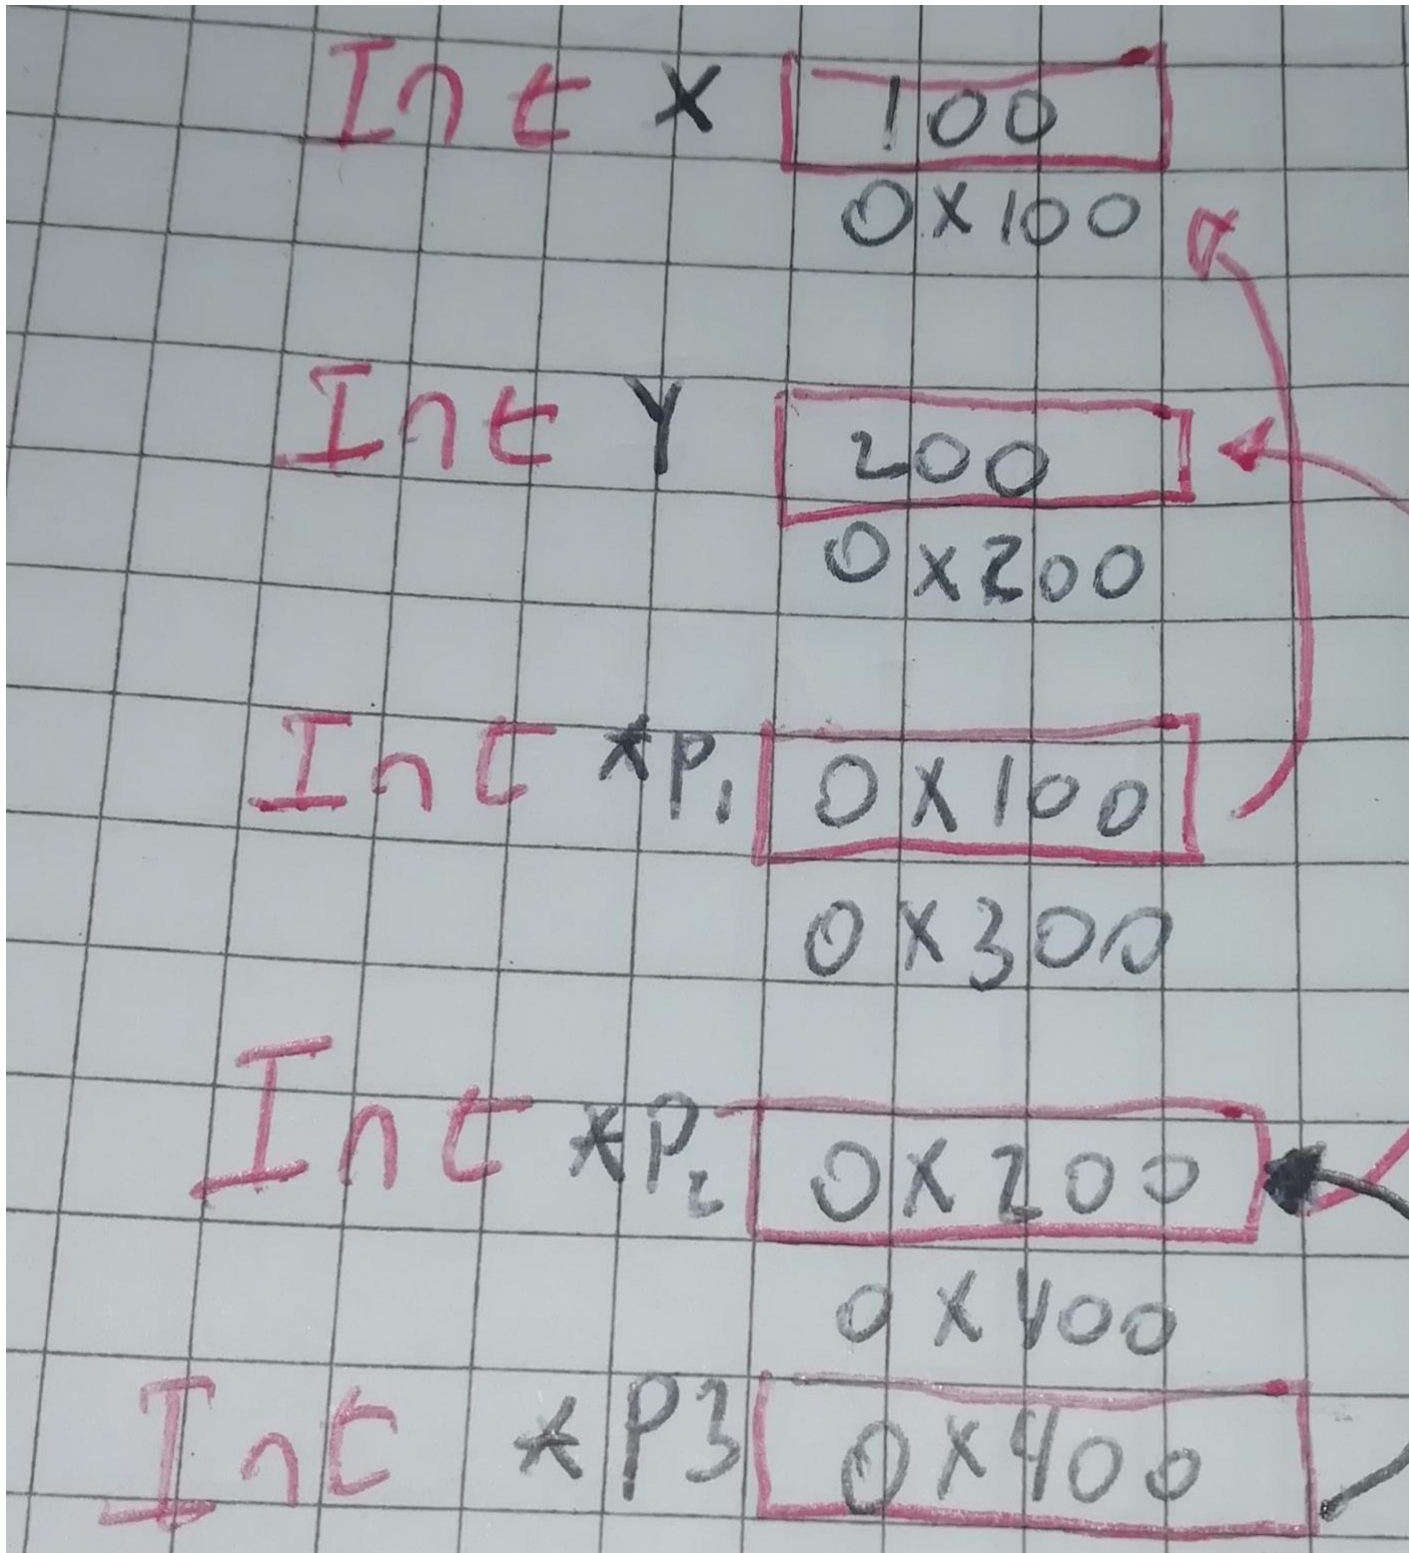 Int X 100
0X100
Int Y 200
0X200
Int *P1 0X100
0X300
Int *P2 0X200
0X400
Int *P3 0X400